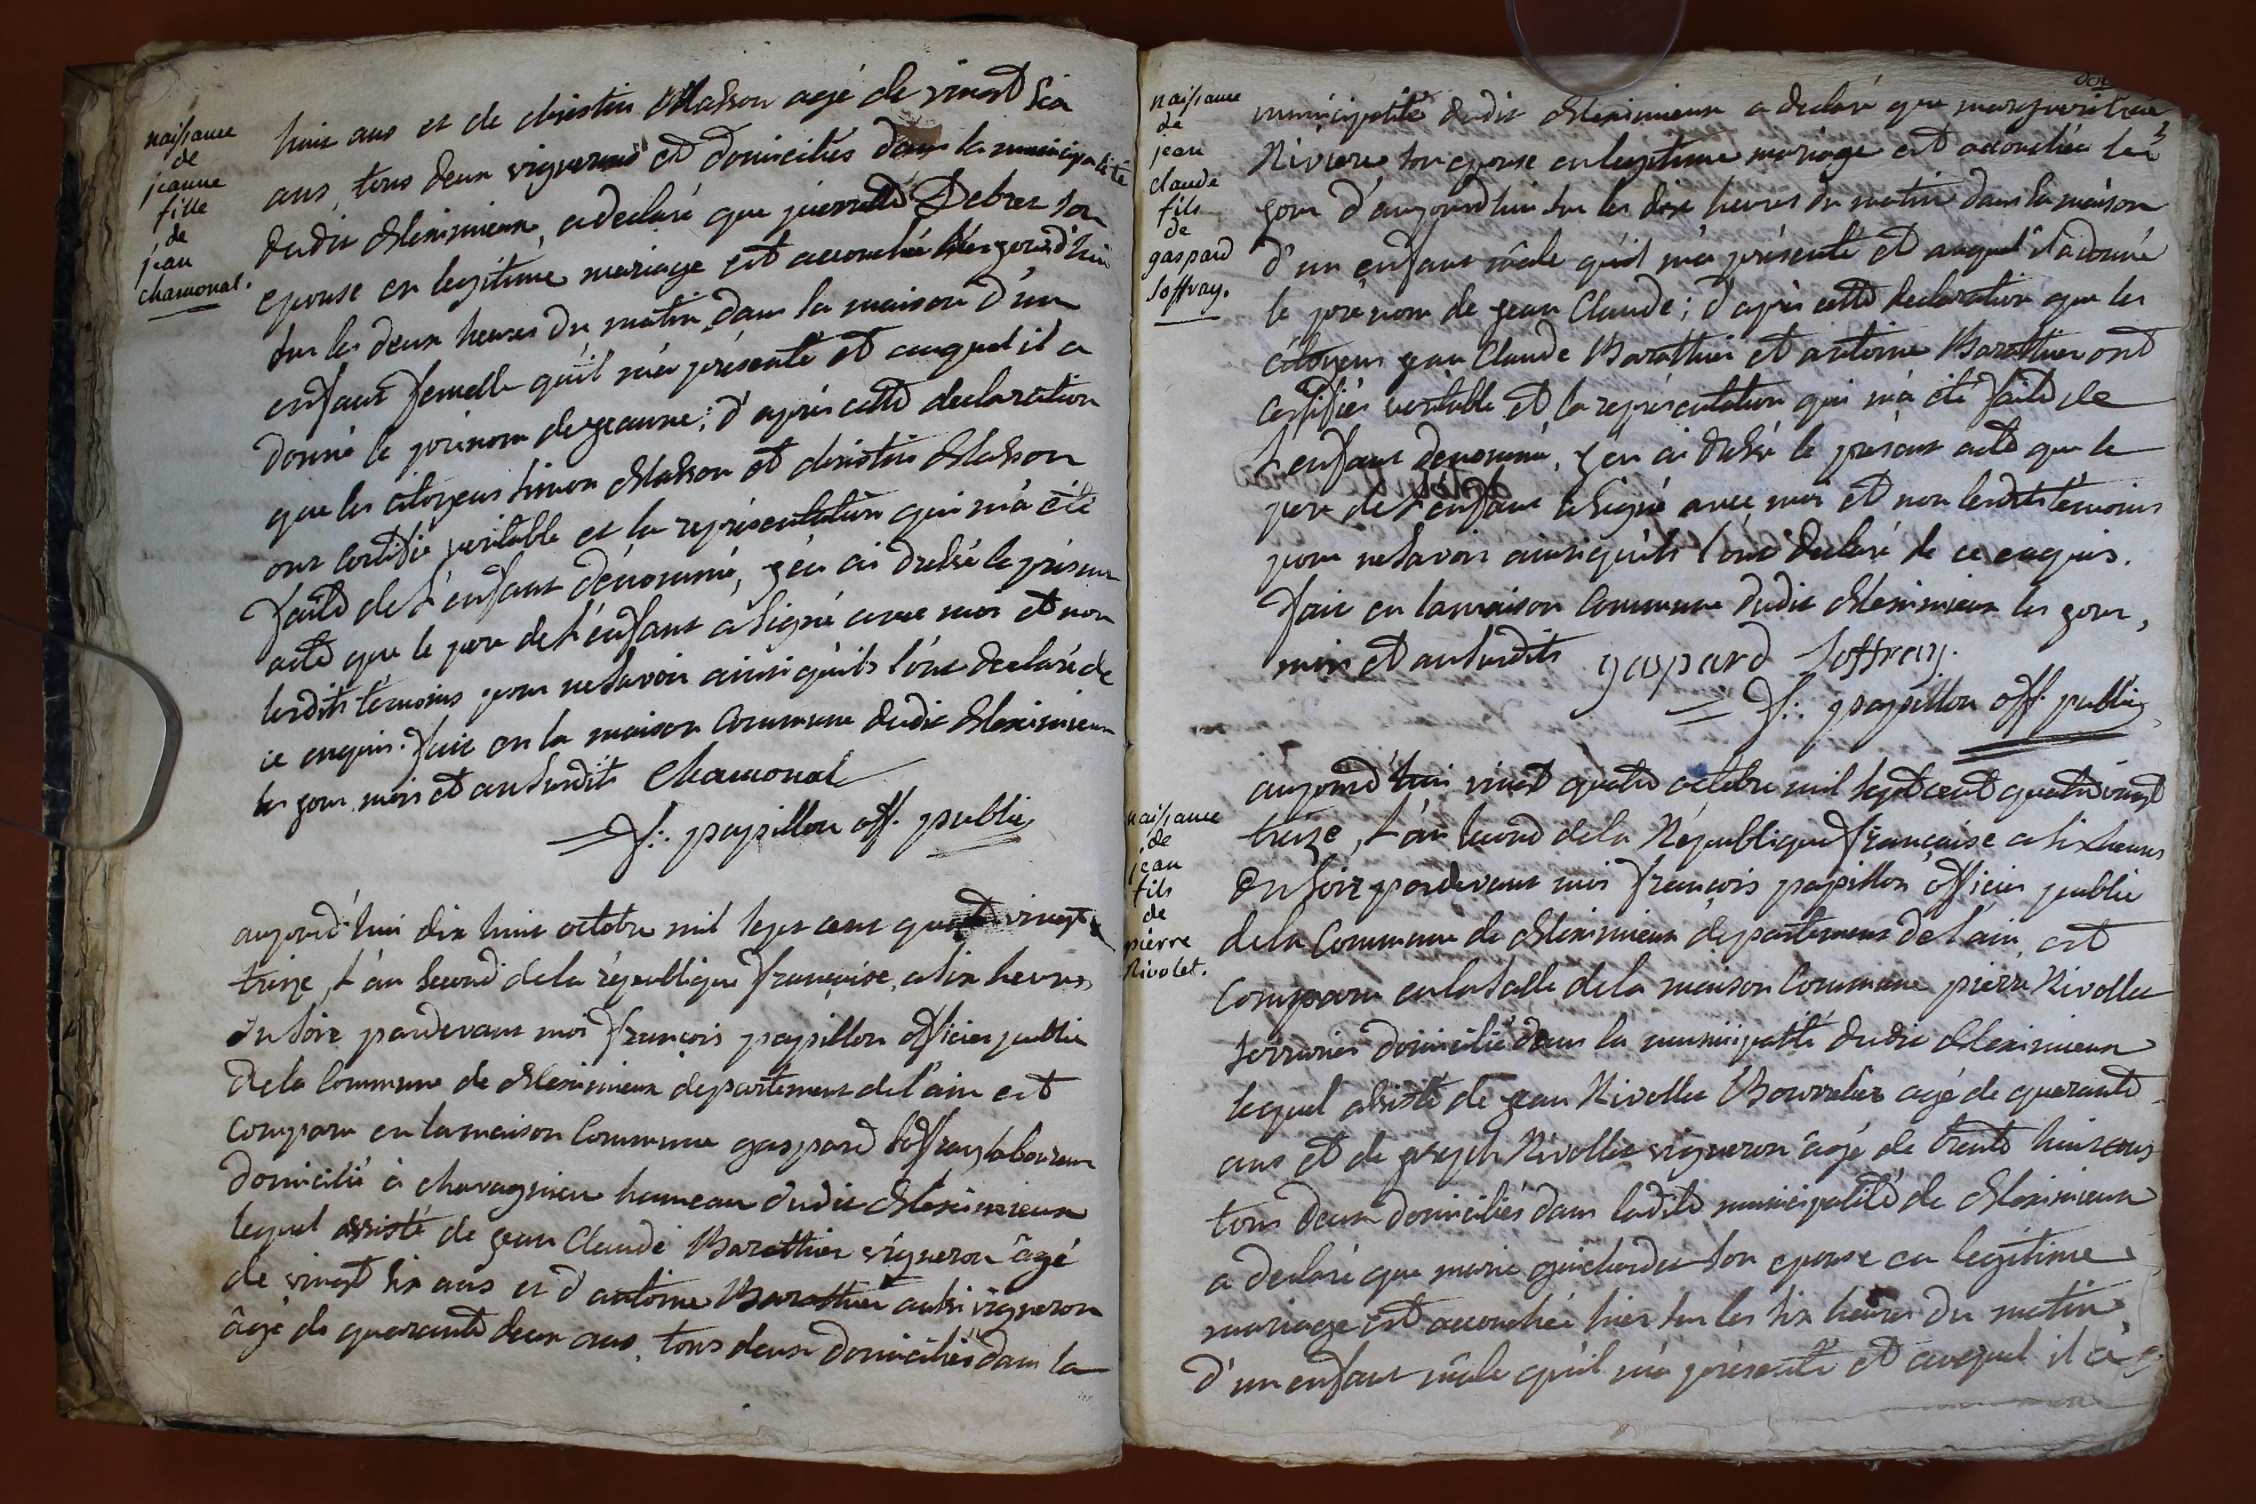 naissance
de
jeanne
fille
de
jean
chamonal.
huit ans et de christin Masson agé de vingt six
ans, tous deux vignerons et domiciliés dans la municipalité
dudit Meximieux, a declaré que pierrette Debrez son
epouse en legitime mariage est accouchée ce jourd'hui
sur les deux heures du matin dans la maison d'un
enfant femelle qu'il m'a présenté et auquel il a
donné le prénom de jeanne; d'après cette declaration
que les citoyens simon Masson et christin Masson
ont certifié veritable et la représentation qui m'a été
faite de l'enfant dénommé, j'en ai dressé le présent
acte que le pere de l'enfant a signé avec moi et non
lesdits témoins pour ne savoir ainsi qu'ils l'ont declaré de
ce enquis. fait en la maison Commune dudit Meximieux
les jour mois et an susdits Chamonal
f.: papillon off. public
aujourd'hui dix huit octobre mil sept cent quatre vingt
treize, l'an second de la république française, a six heures
du soir pardevant moi françois papillon officier public
de la Commune de Meximieux departement de l'ain est
comparu en la maison Commune gaspard Soffray laboureur
domicilié à chavagnieu hameau dudit Meximieux
lequel assisté de jean Claude Barathier vigneron âgé
de vingt six ans et d'antoine Barathier aussi vigneron
âgé de quarante deux ans, tous deux domiciliés dans la
naissance
de
jean
claude
fils
de
gaspard
soffray.
municipalité dudit Meximieux a declaré que marguerite
Riviere son epouse en legitime mariage est accouchée le
jour d'aujourd'hui sur les dix heures du matin dans la maison
d'un enfant mâle qu'il m'a présenté et auquel il a donné
le prénom de jean Claude; d'après cette declaration que les
citoyens jean Claude Barathier et antoine Barathier ont
certifiés veritable et la représentation qui m'a été faite de
l'enfant denommé, j'en ai dressé le présent acte que le
pere de l'enfant a signé avec moi et non lesdits témoins
pour ne savoir ainsi qu'ils l'ont declaré de ce enquis.
fait en la maison Commune dudit Meximieux les jour,
mois et an susdits gaspard soffray.
f.: papillon off. public
naissance
de
jean
fils
de
pierre
Rivolet.
aujourd'hui vingt quatre octobre mil sept cent quatre vingt
treize, l'an second de la République française a six heures
du soir pardevant moi françois papillon officier public
de la Commune de Meximieux departement de l'ain, est
comparu en la salle de la maison Commune pierre Rivollet
serrurier domicilié dans la municipalité dudit Meximieux
lequel assisté de jean Rivollet Bourrelier agé de quarante
ans et de joseph Rivollet vigneron âgé de trente huit ans
tous deux domiciliés dans ladite municipalité de Meximieux
a declaré que marie guichardet son epouse en legitime
mariage est accouchée hier sur les six heures du matin
d'un enfant mâle qu'il m'a présenté et auquel il a